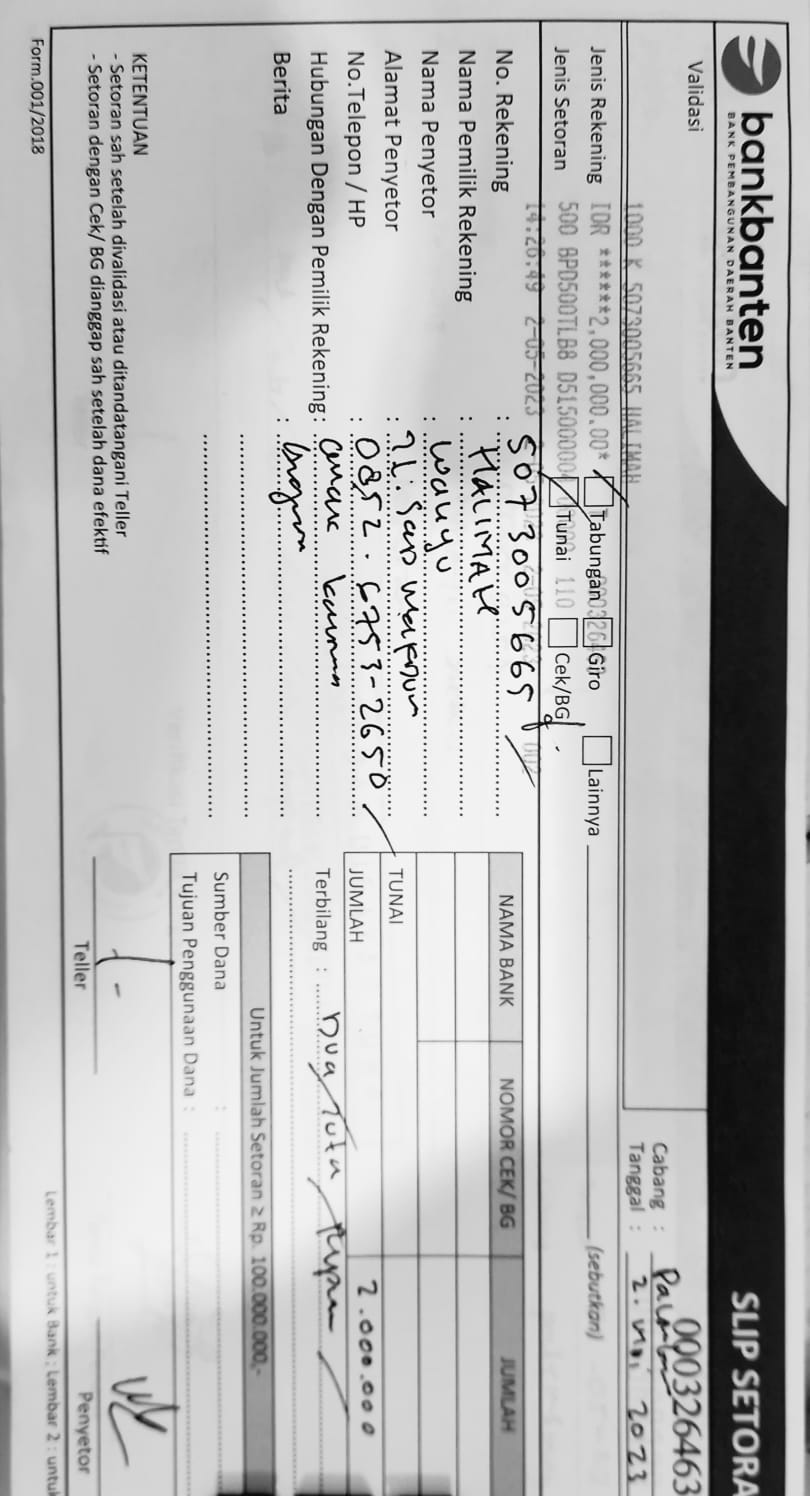 bankbanten
BANK PEMBANGUNAN DAERAH BANTEN
SLIP SETORA
000326463
Validasi
Cabang :
Tanggal : 2. Mei 2023
1000 K 5073005665 HALIMAH
Jenis Rekening IDR ******2,000,000.00* Tabungan Giro Lainnya (sebutkan)
Jenis Setoran 500 BPD500TLB8 Tunai 110 Cek/BG
14:26:49 2-05-2023 002
No. Rekening : 5073005665
Nama Pemilik Rekening : HALIMAH
Nama Penyetor : Wahyu
Alamat Penyetor :
No.Telepon / HP : 0852. 6753-2650
Hubungan Dengan Pemilik Rekening :
Berita :
NAMA BANK NOMOR CEK/ BG JUMLAH
TUNAI
JUMLAH 2.000.000
Terbilang : Dua Juta Rupiah
Untuk Jumlah Setoran ≥ Rp. 100.000.000,-
Sumber Dana :
Tujuan Penggunaan Dana :
KETENTUAN
- Setoran sah setelah divalidasi atau ditandatangani Teller
- Setoran dengan Cek/ BG dianggap sah setelah dana efektif
Teller
Penyetor
Form.001/2018
Lembar 1 : untuk Bank ; Lembar 2 : untuk